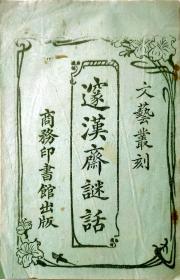 文藝叢刻
邃漢齋謎話
商務印書館出版